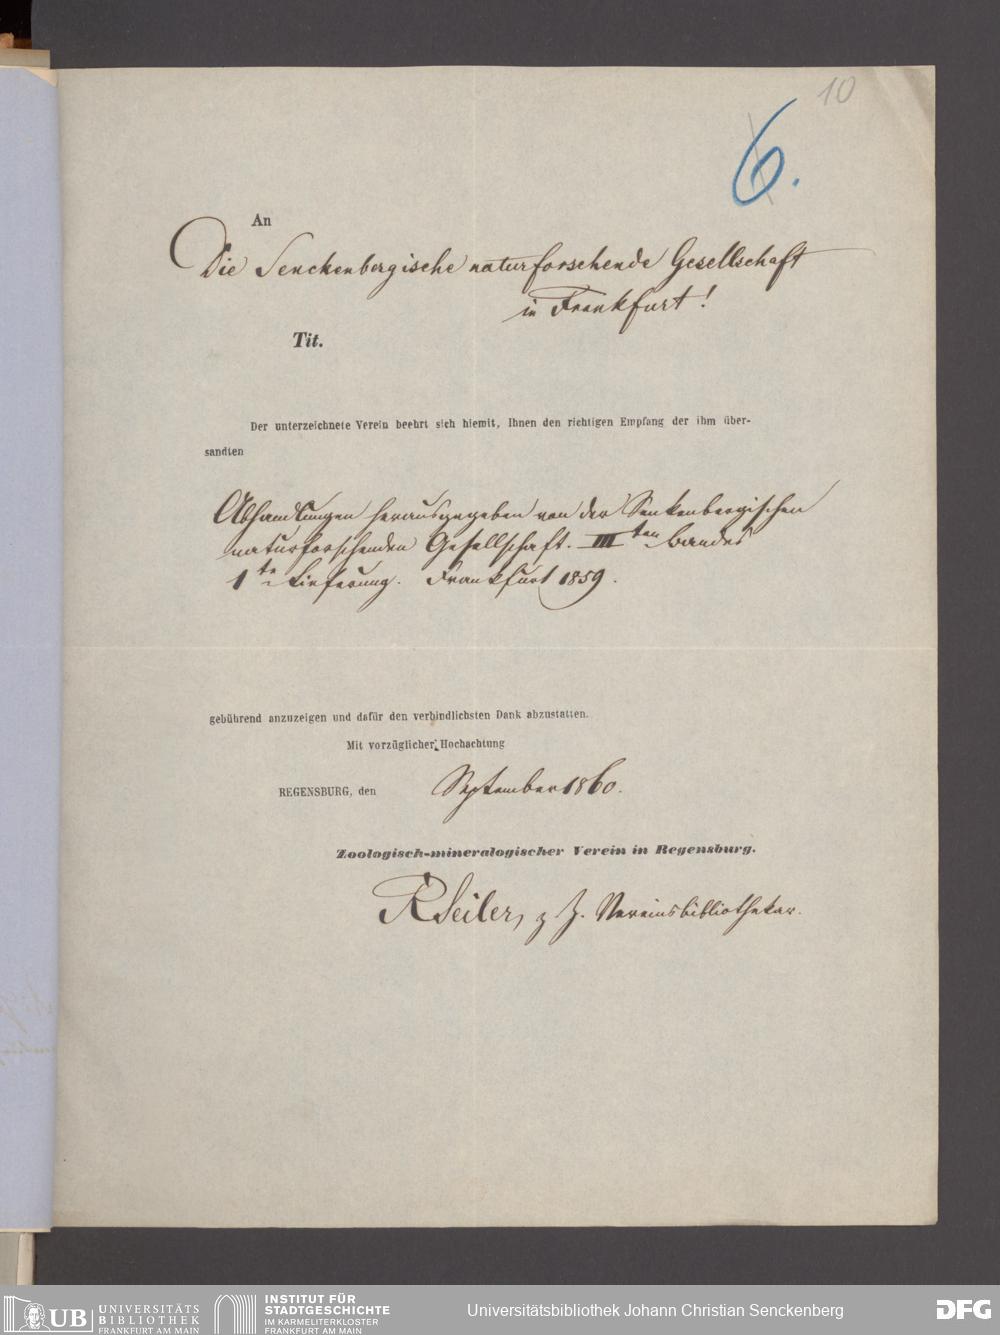 10
6.
An
Die Senckenbergische naturforschende Gesellschaft
in Frankfurt!
Tit.
Der unterzeichnete Verein beehrt sich hiemit, Ihnen den richtigen Empfang der ihm über-
sandten
Abhandlungen herausgegeben von der Senkenbergischen
naturforschenden Gesellschaft. III ten Bandes
1 te Lieferung. Frankfurt 1859.
gebührend anzuzeigen und dafür den verbindlichsten Dank abzustatten.
Mit vorzüglicher Hochachtung
REGENSBURG, den September 1860.
Zoologisch-mineralogischer Verein in Regensburg.
R Seiler, z. Z. Vereinsbibliothekar.
UB UNIVERSITÄTS
BIBLIOTHEK
FRANKFURT AM MAIN
INSTITUT FÜR
STADTGESCHICHTE
IM KARMELITERKLOSTER
FRANKFURT AM MAIN
Universitätsbibliothek Johann Christian Senckenberg
DFG